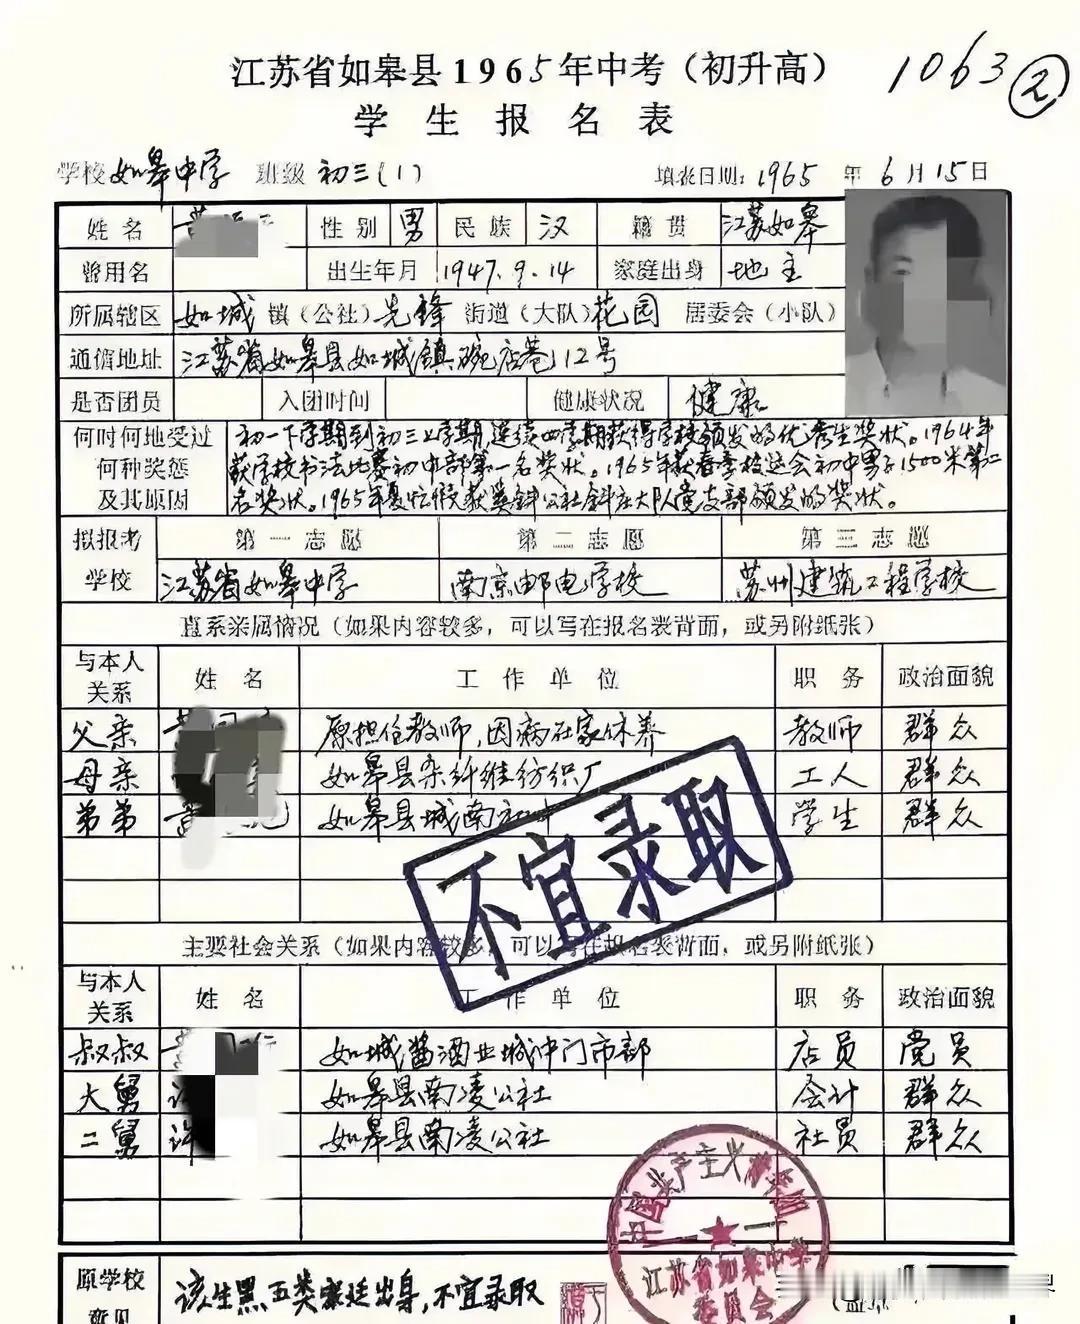 江苏省如皋县1965年中考(初升高)
1063 ②
学生报名表
学校 如皋中学 班级 初三(1) 填表日期: 1965 年 6 月 15 日
姓名 黄 性别 男 民族 汉 籍贯 江苏如皋
曾用名 出生年月 1947.9.14 家庭出身 地主
所属辖区 如城 镇(公社) 先锋 街道(大队) 花园 居委会(小队)
通信地址 江苏省如皋县如城镇碗店巷12号
是否团员 入团时间 健康状况 健康
何时何地受过 初一下学期到初三上学期连续四学期获得学校颁发的优秀生奖状。1964年
何种奖惩 获学校书法比赛初中部第一名奖状。1965年获春季校运会初中男子1500米第二
及其原因 名奖状。1965年夏忙假获斜公社斜庄大队党支部颁发的奖状。
拟报考 第一志愿 第二志愿 第三志愿
学校 江苏省如皋中学 南京邮电学校 苏州建筑工程学校
直系亲属情况(如果内容较多,可以写在报名表背面,或另附纸张)
与本人关系 姓名 工作单位 职务 政治面貌
父亲 黄 原担任教师,因病在家休养 教师 群众
母亲 如皋县杂纤维纺织厂 工人 群众
弟弟 黄 如皋县城南初中 学生 群众
不宜录取
主要社会关系(如果内容较多,可以写在报名表背面,或另附纸张)
与本人关系 姓名 工作单位 职务 政治面貌
叔叔 黄 如城酱酒业城中门市部 店员 党员
大舅 许 如皋县南凌公社 会计 群众
二舅 许 如皋县南凌公社 社员 群众
中国共产主义青年团
江苏省如皋中学
委员会
原学校意见 该生黑五类家庭出身,不宜录取